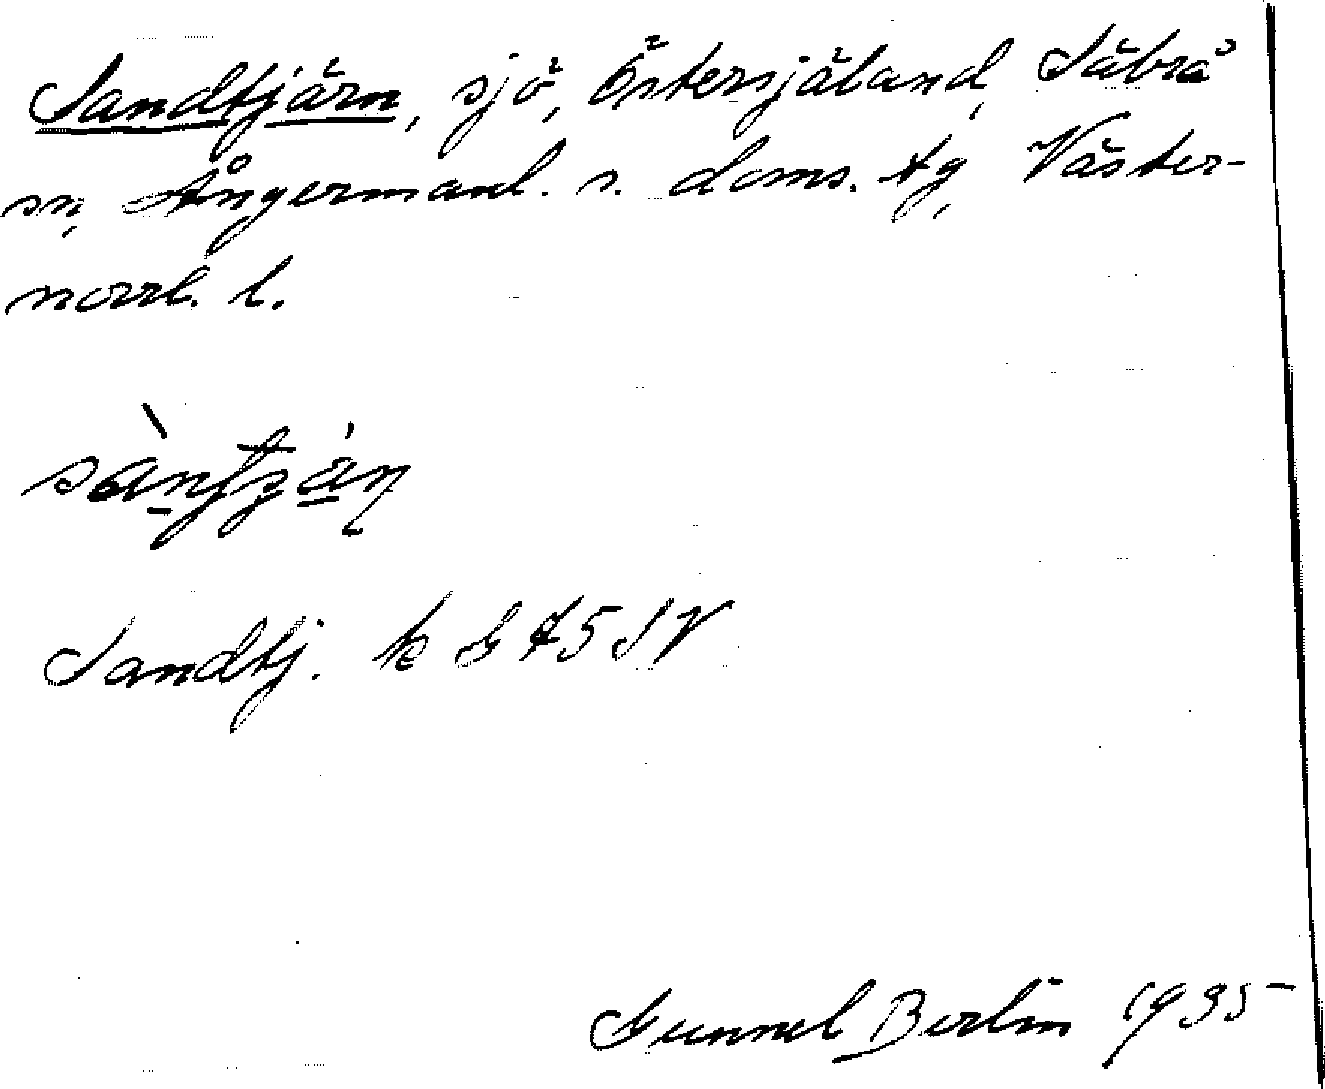 Sandtjärn, sjö, Östersjäland, Säbrå
sn, Ångermanl. s. doms. tg, Väster-
norrl. l.
Sandtj. k G 45 SV
Gunnel Berlin 1935